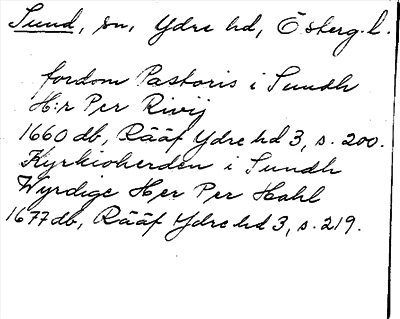 Sund, sn, Ydre hd, Österg. l.
fordom Pastoris i Sundh
H:r Per Rivij
1660 db, Rääf Ydre hd 3, s. 200.
Kyrkioherden i Sundh
Wyrdige Her Per Hahl
1677 db, Rääf Ydre hd 3, s. 219.